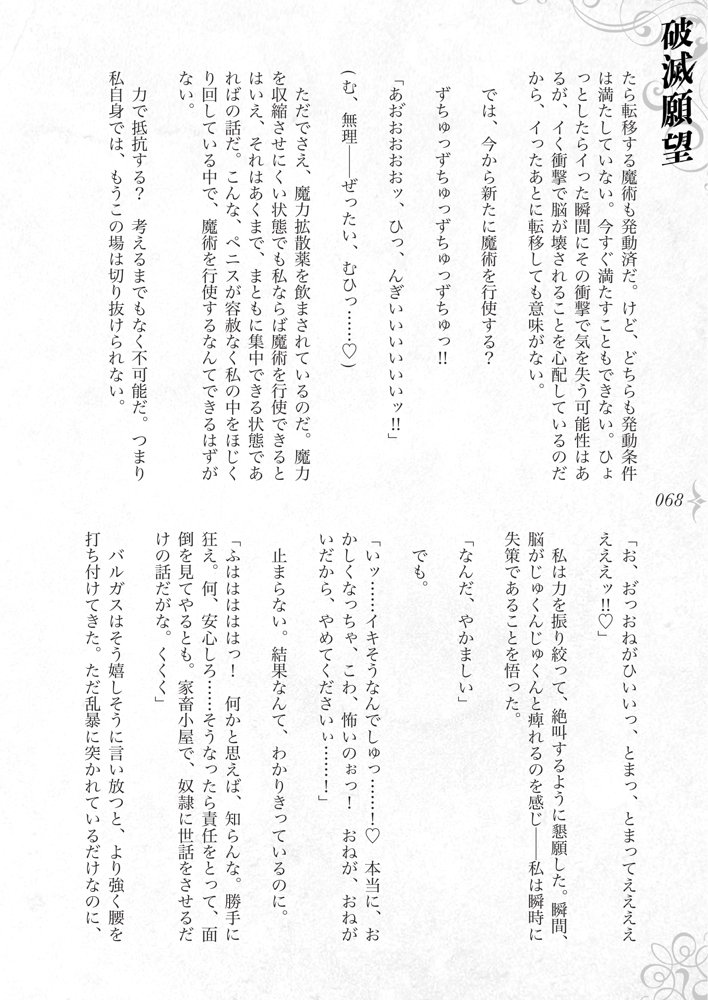 破滅願望
たら転移する魔術も発動済だ。けど、どちらも発動条件
は満たしていない。今すぐ満たすこともできない。ひょ
っとしたらイった瞬間にその衝撃で気を失う可能性はあ
るが、イく衝撃で脳が壊されることを心配しているのだ
から、イったあとに転移しても意味がない。
では、今から新たに魔術を行使する？
ずちゅっずちゅっずちゅっずちゅっ!!
「あお゛おおおおッ、ひっ、んぎいいいいいいッ!!」
(む、無理――ぜったい、むひっ……♡)
ただでさえ、魔力拡散薬を飲まされているのだ。魔力
を収縮させにくい状態でも私ならば魔術を行使できると
はいえ、それはあくまで、まともに集中できる状態であ
ればの話だ。こんな、ペニスが容赦なく私の中をほじく
り回している中で、魔術を行使するなんてできるはずが
ない。
力で抵抗する？　考えるまでもなく不可能だ。つまり
私自身では、もうこの場は切り抜けられない。
068
「お、お゛っおねがひいいっ、とまっ、とまってええええ
えええッ!!♡」
私は力を振り絞って、絶叫するように懇願した。瞬間、
脳がじゅくんじゅくんと痺れるのを感じ――私は瞬時に
失策であることを悟った。
「なんだ、やかましい」
でも。
「いッ……イキそうなんでしゅっ……！♡　本当に、お
かしくなっちゃ、こわ、怖いのぉっ！　おねが、おねが
いだから、やめてくださいぃ……！」
止まらない。結果なんて、わかりきっているのに。
「ふはははははっ！　何かと思えば、知らんな。勝手に
狂え。何、安心しろ……そうなったら責任をとって、面
倒を見てやるとも。家畜小屋で、奴隷に世話をさせるだ
けの話だがな。くくく」
バルガスはそう嬉しそうに言い放つと、より強く腰を
打ち付けてきた。ただ乱暴に突かれているだけなのに、